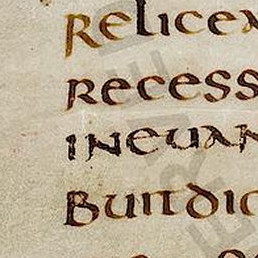 relicea
recess
ineuan
buitdic